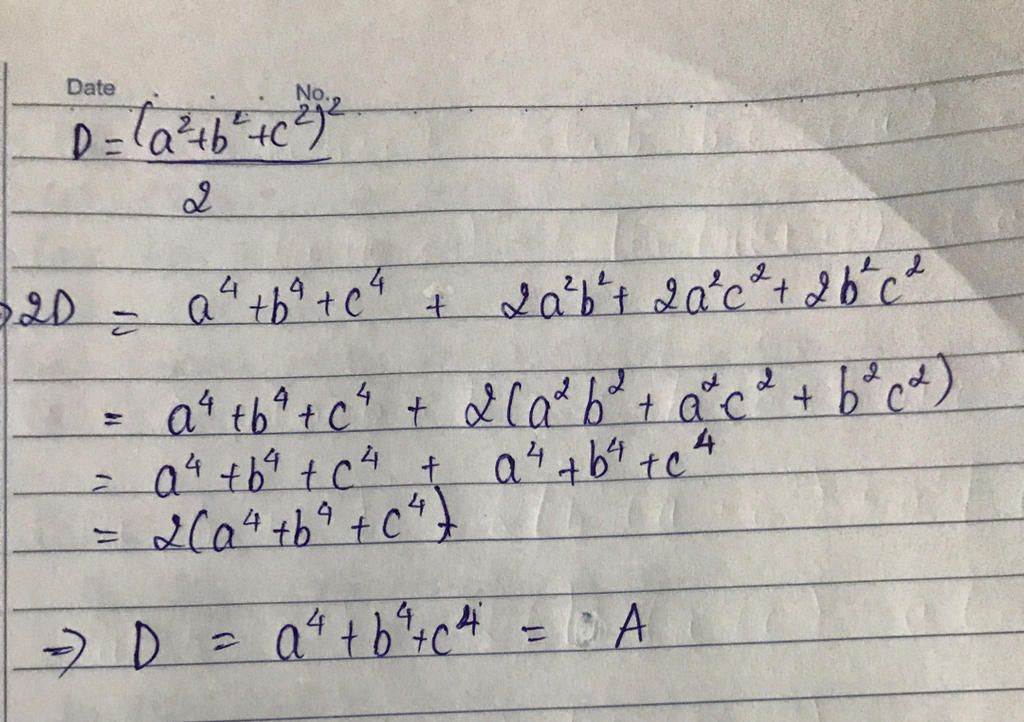 Date No.
D = (a²+b²+c²)²
2
⇒ 2D = a⁴+b⁴+c⁴ + 2a²b²+ 2a²c²+ 2b²c²
= a⁴+b⁴+c⁴ + 2(a²b²+ a²c² + b²c²)
= a⁴+b⁴+c⁴ + a⁴+b⁴+c⁴
= 2(a⁴+b⁴+c⁴)
⇒ D = a⁴+b⁴+c⁴ = A